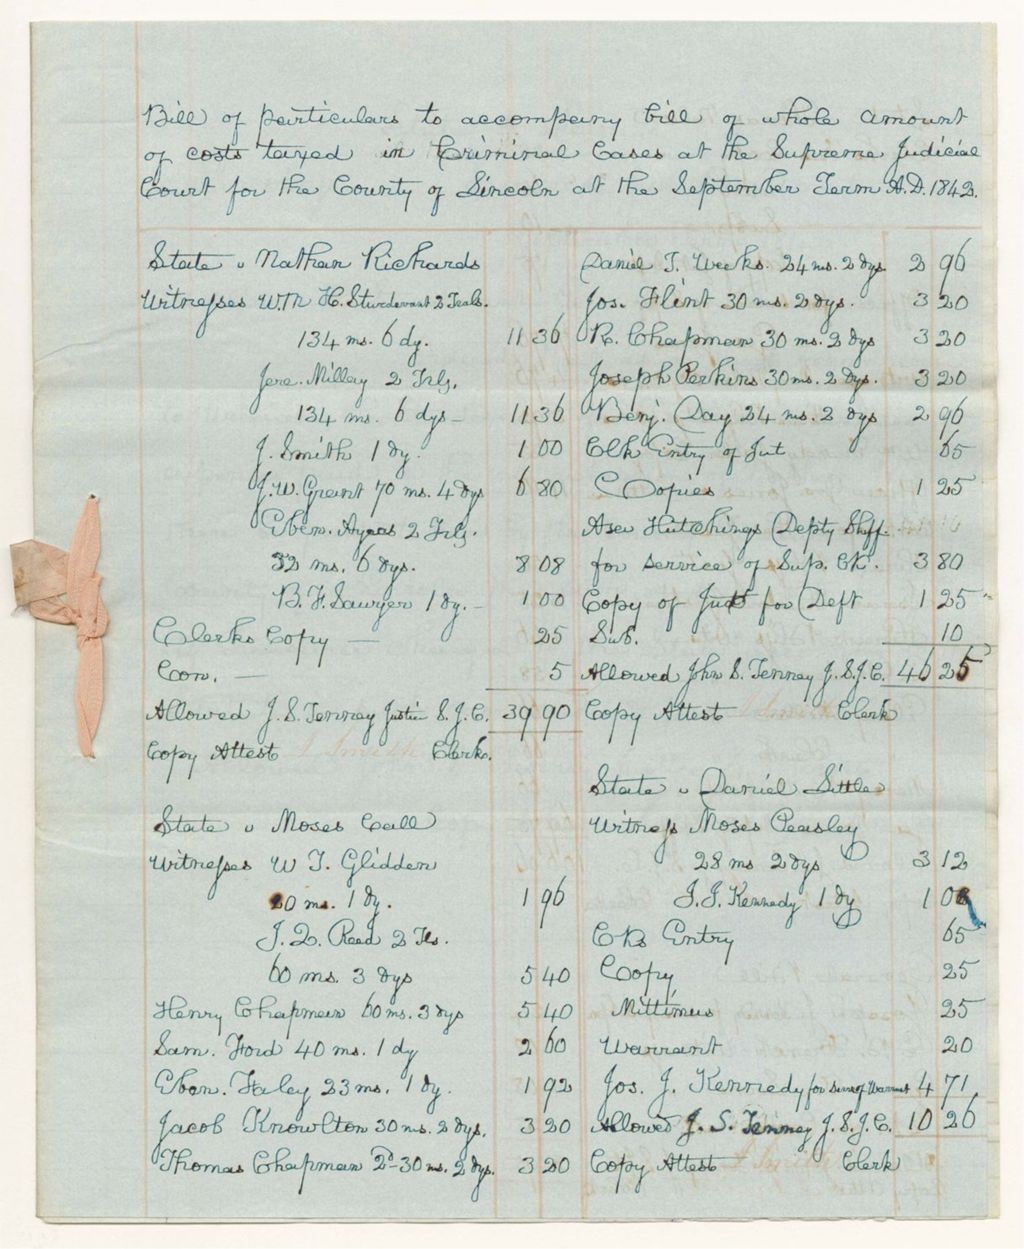 Bill of particulars to accompany bill of whole amount
of costs taxed in Criminal Cases at the Supreme Judicial
Court for the County of Lincoln at the September Term A.D. 1842.
State v Nathan Richards
Witnesses Wm H. Sturdevant 2 Teals.
134 ms. 6 dy. 11 36
Jere. Millay 2 Trls.
134 ms. 6 dys - 11 36
J. Smith 1 dy. 1 00
J. W. Grant 70 ms. 4 dys 6 80
Eben. Ayers 2 Trls.
32 ms. 6 dys. 8 08
B. F. Sawyer 1 dy. - 1 00
Clerks Copy — 25
Con. — 5
Allowed J. S. Tenney Justice S. J. C. 39 90
Copy Attest J Smith Clerk.
State v Moses Call
Witnesses W T. Glidden
20 ms. 1 dy. 1 96
J. Q. Reed 2 Tls.
60 ms. 3 dys 5 40
Henry Chapman 60 ms. 3 dys 5 40
Sam. Ford 40 ms. 1 dy 2 60
Eben. Faley 23 ms. 1 dy. 1 92
Jacob Knowlton 30 ms. 2 dys. 3 20
Thomas Chapman 2d 30 ms. 2 dys. 3 20
Daniel T. Weeks. 24 ms. 2 dys. 2 96
Jos. Flint 30 ms. 2 dys. 3 20
R. Chapman 30 ms. 2 dys 3 20
Joseph Perkins 30 ms. 2 dys. 3 20
Benj. Day 24 ms. 2 dys 2 96
Clk Entry of Jut 65
Copies 1 25
Asa Hutchings Depty Shff.
for service of Sup. Ck. 3 80
Copy of Judt for Deft 1 25
Sub. 10
Allowed John S. Tenney J. S. J. C. 46 25
Copy Attest J Smith Clerk
State v Daniel Little
Witness Moses Peasley
28 ms 2 dys 3 12
J. J. Kennedy 1 dy 1 00
Cks Entry 65
Copy 25
Mittimus 25
Warrant 20
Jos. J. Kennedy for serv of Warrant 4 71
Allowed J. S. Tenney J. S. J. C. 10 26
Copy Attest J Smith Clerk